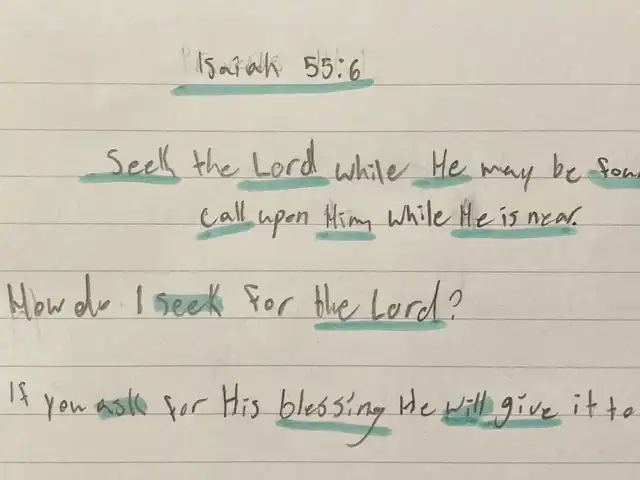 Isaiah 55:6
Seek the Lord while He may be foun
Call upon Him while He is near.
How do I seek for the Lord?
If you ask for His blessing He will give it to